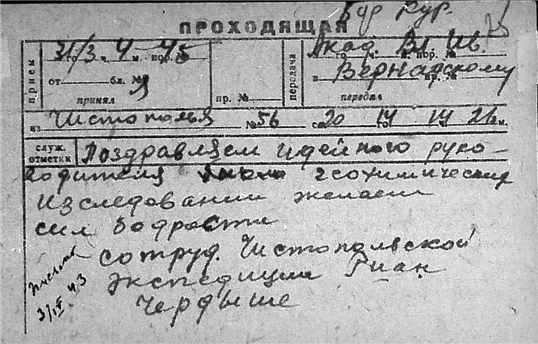 ПРОХОДЯЩАЯ
Бур Кур.
прием
31/3 ч. 4 м. 45
от бл. №
принял
пр. №
передача
Акад Вл Ив.
Вернадскому
передал
из Чистополья № 56 сл 20 14 14 21 м.
служ. отметки
Поздравляем идейного руко-
водителя геохимических
изследований желаем
сил бодрости
сотруд. Чистопольской
экспедиции Гиан
Чердыше
3/IV 43